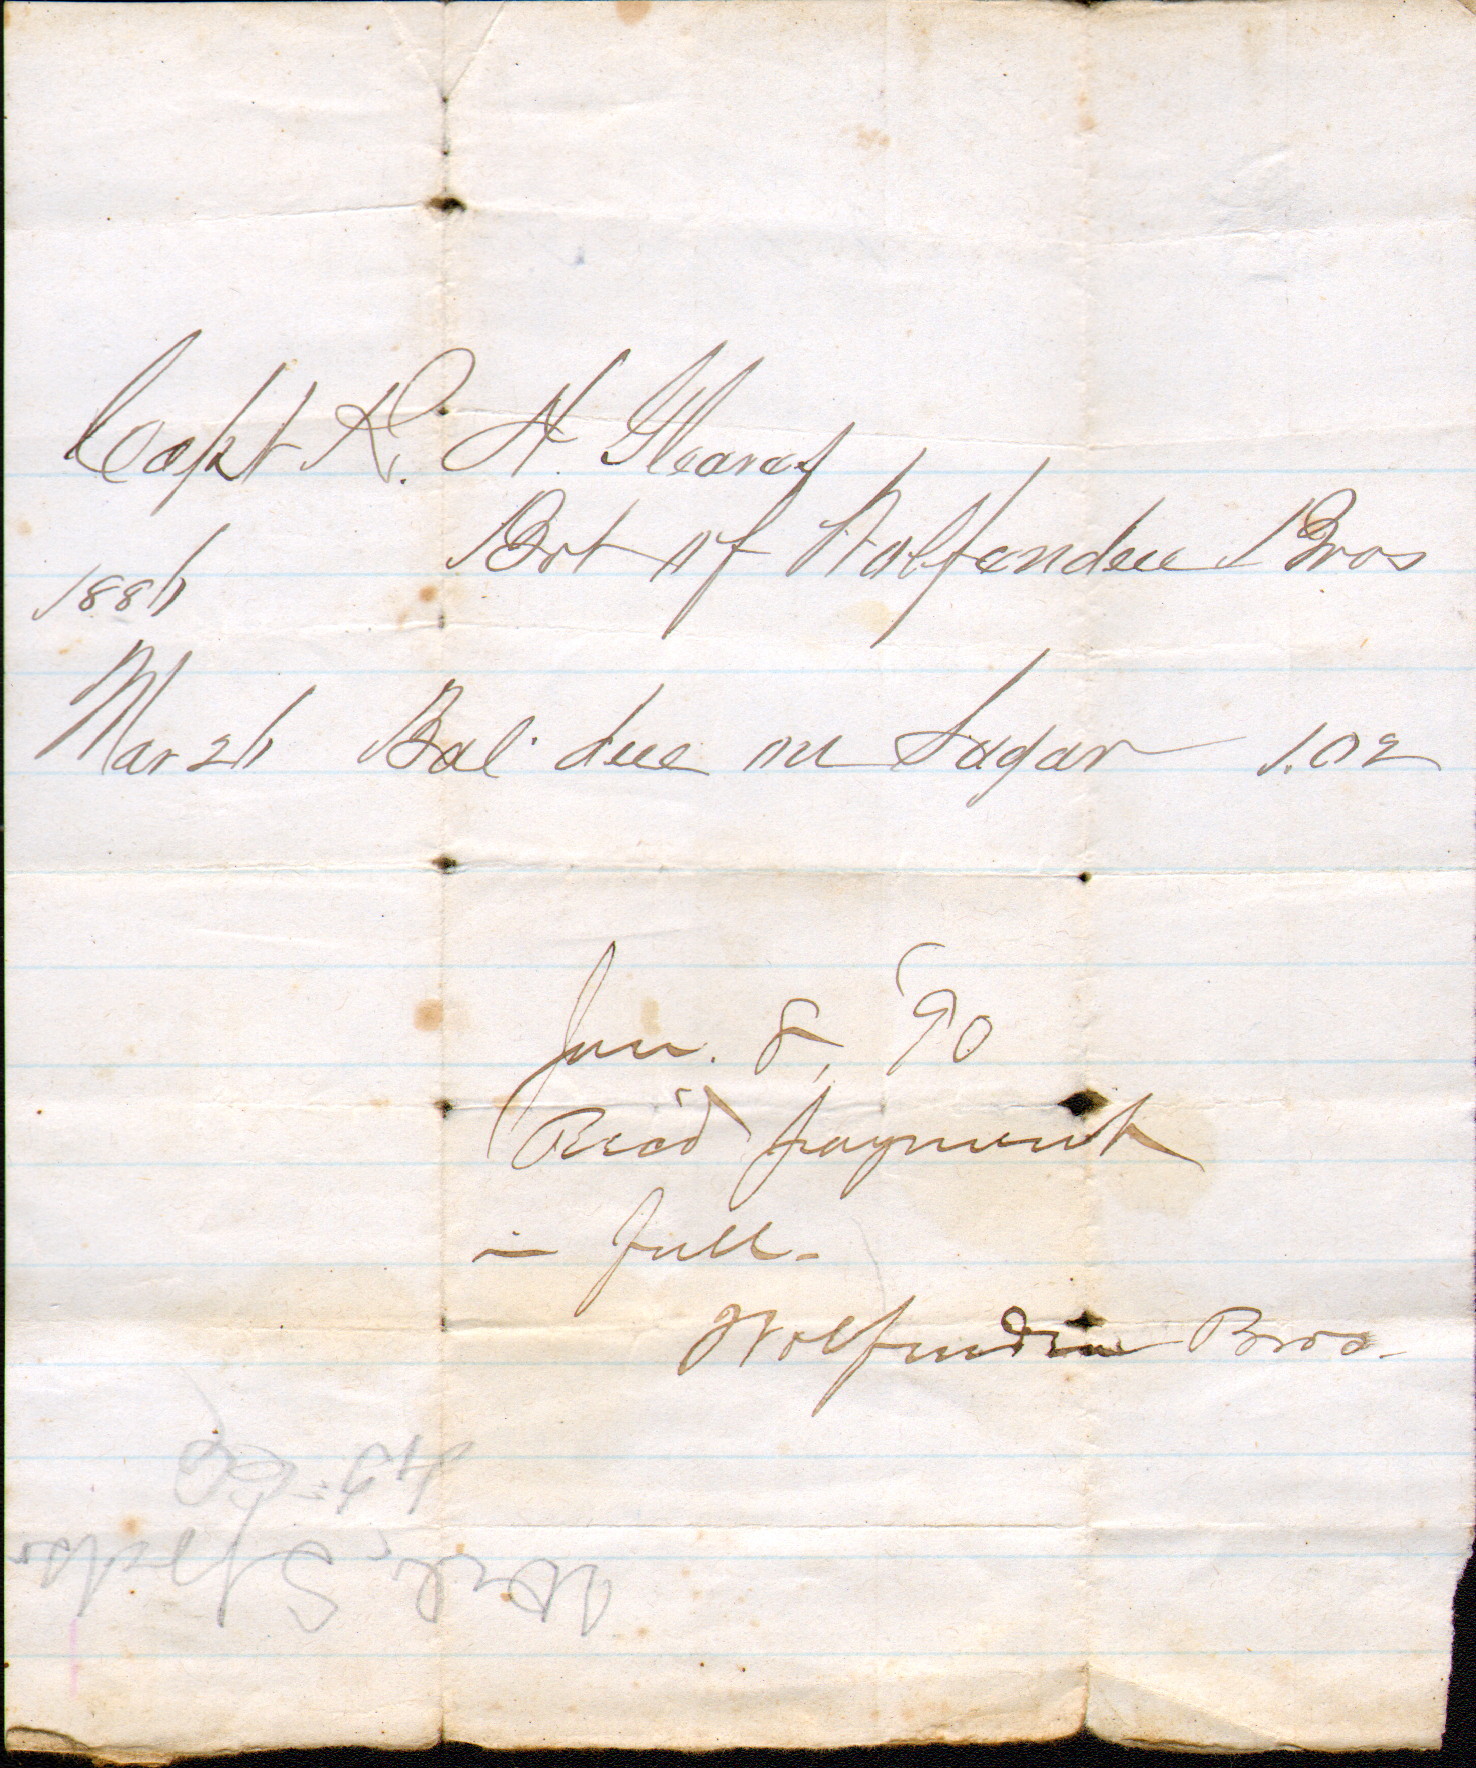 Capt R. H. Gleaves
Bot of Wolfenden Bros
1886
Mar 26 Bal. due on Sugar 1.02
Jan. 8, '90
Rec'd payment
in full.
Wolfenden Bros.